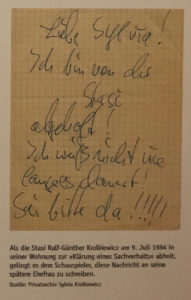 Liebe Sylvia!
Ich bin von der
Stasi
abgeholt!
Ich weiß nicht wie
lange es dauert!
Sei bitte da !!!!!
Als die Stasi Ralf-Günther Krolkiewicz am 9. Juli 1984 in
seiner Wohnung zur «Klärung eines Sachverhalts» abholt,
gelingt es dem Schauspieler, diese Nachricht an seine
spätere Ehefrau zu schreiben.
Quelle: Privatarchiv Sylvia Krolkiewicz